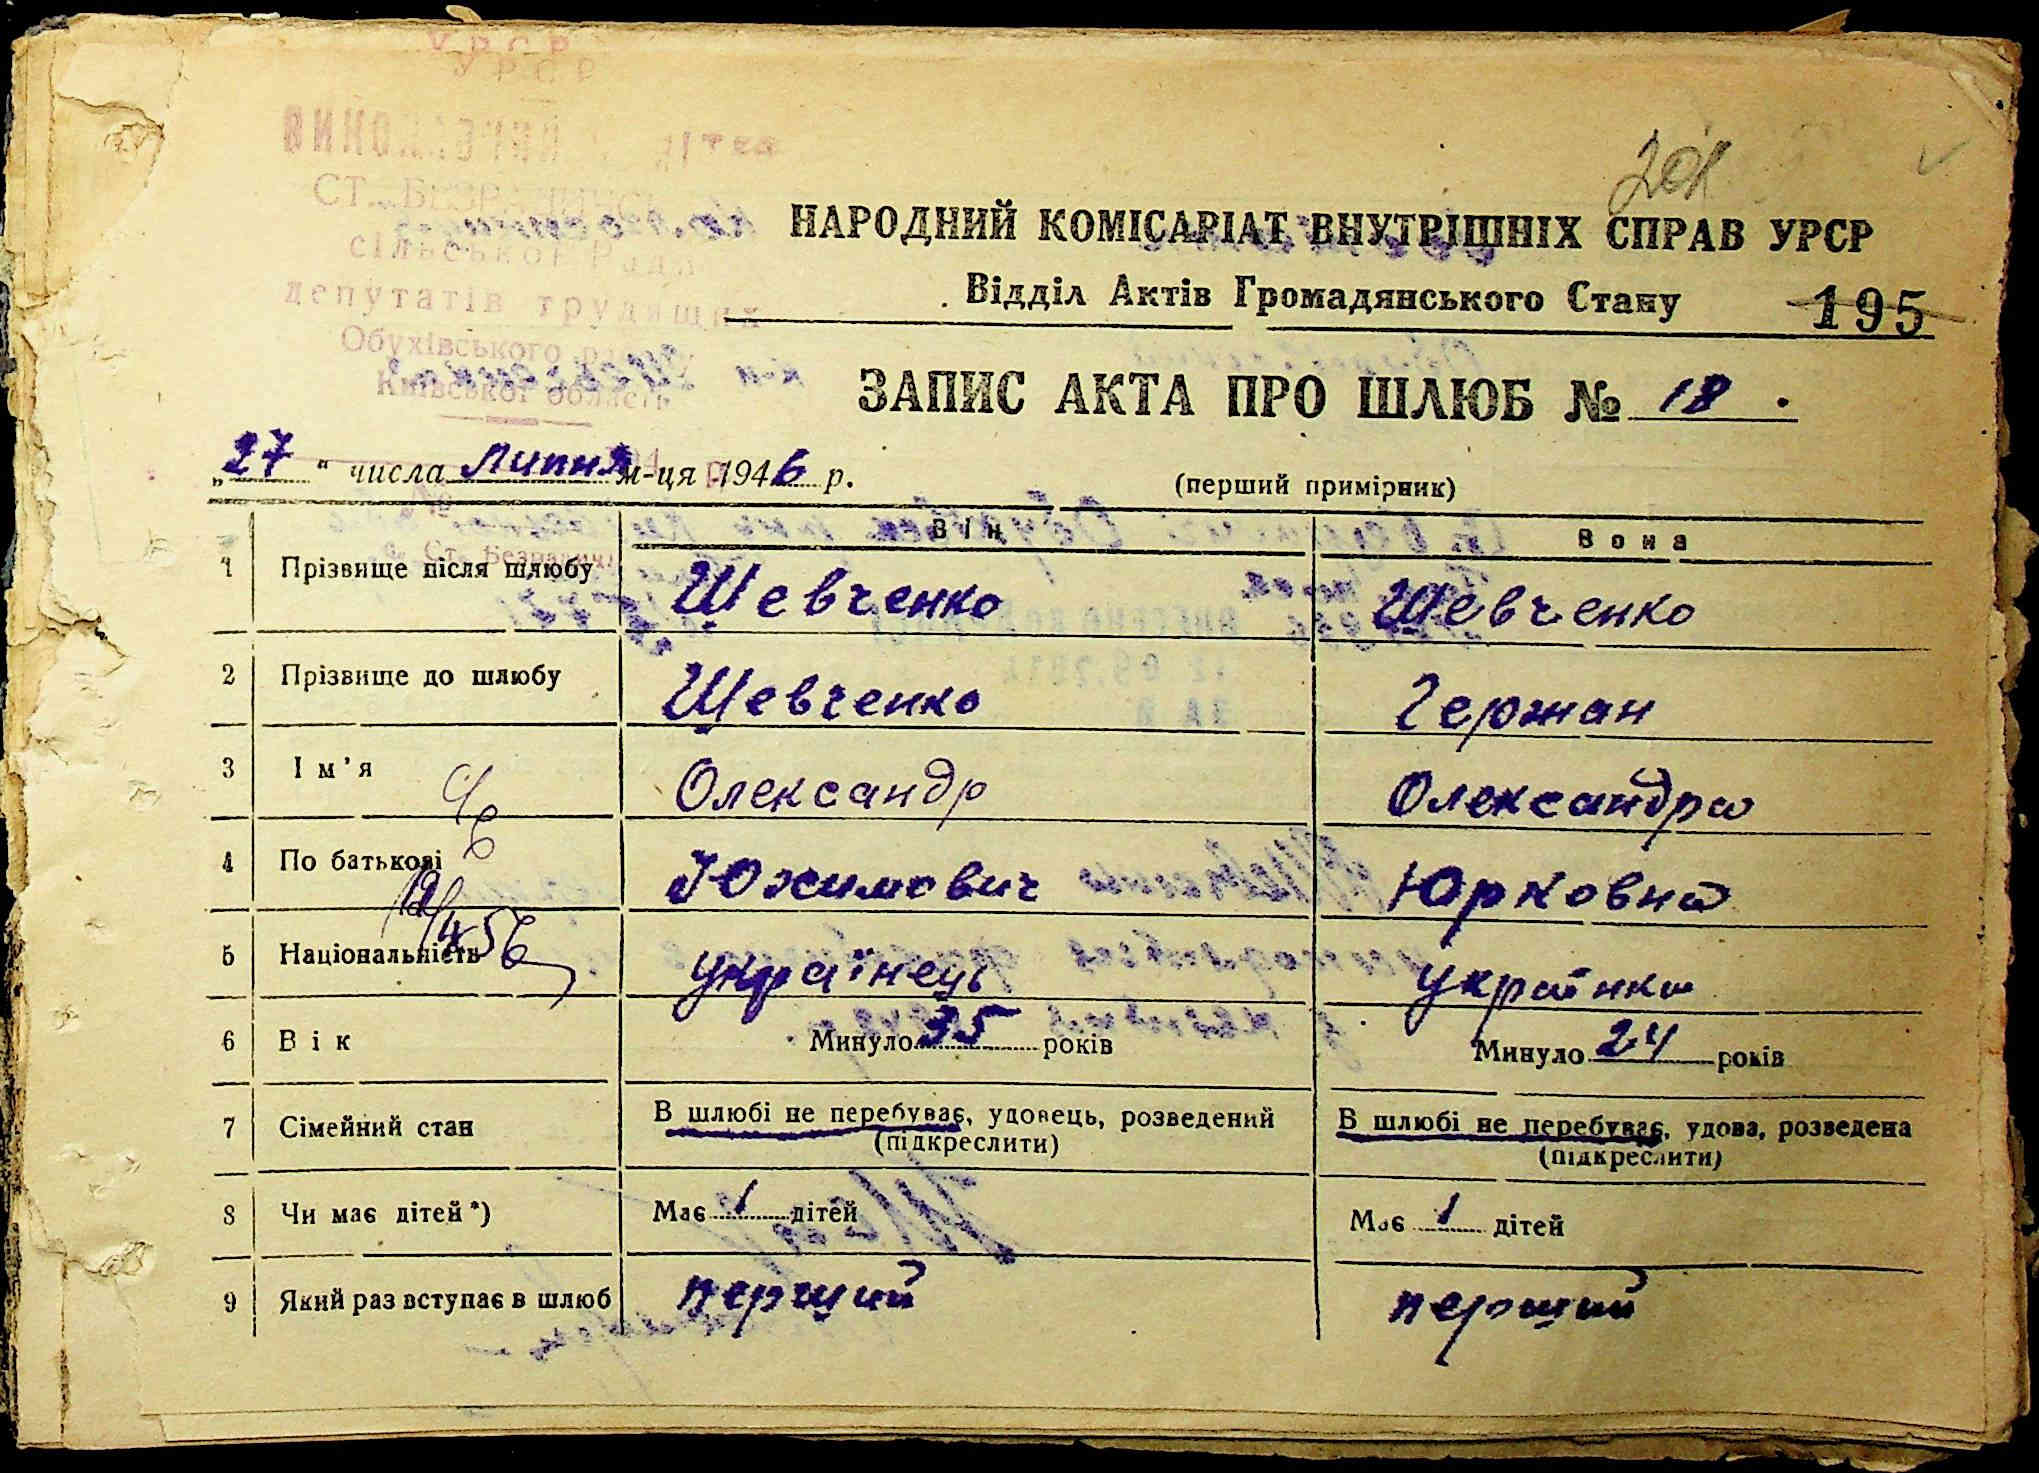 УРСР
УРСР
ВИКОНАВЧИЙ
СТ. БЕЗРАДИЧСЬ
сільської Ради
депутатів трудящих
Обухівського
Київської області
201
НАРОДНИЙ КОМІСАРІАТ ВНУТРІШНІХ СПРАВ УРСР
Відділ Актів Громадянського Стану 195
ЗАПИС АКТА ПРО ШЛЮБ № 18.
„27“ числа Липня м-ця 1946 р. (перший примірник)
Він Вона
1 Прізвище після шлюбу Шевченко Шевченко
2 Прізвище до шлюбу Шевченко Гержан
3 Ім’я Олександр Олександра
4 По батькові Юхимович Юрковна
5 Національність українець українка
6 Вік Минуло 35 років Минуло 24 років
7 Сімейний стан В шлюбі не перебуває, удовець, розведений (підкреслити) В шлюбі не перебуває, удова, розведена (підкреслити)
8 Чи має дітей *) Має 1 дітей Має 1 дітей
9 Який раз вступає в шлюб перший перший